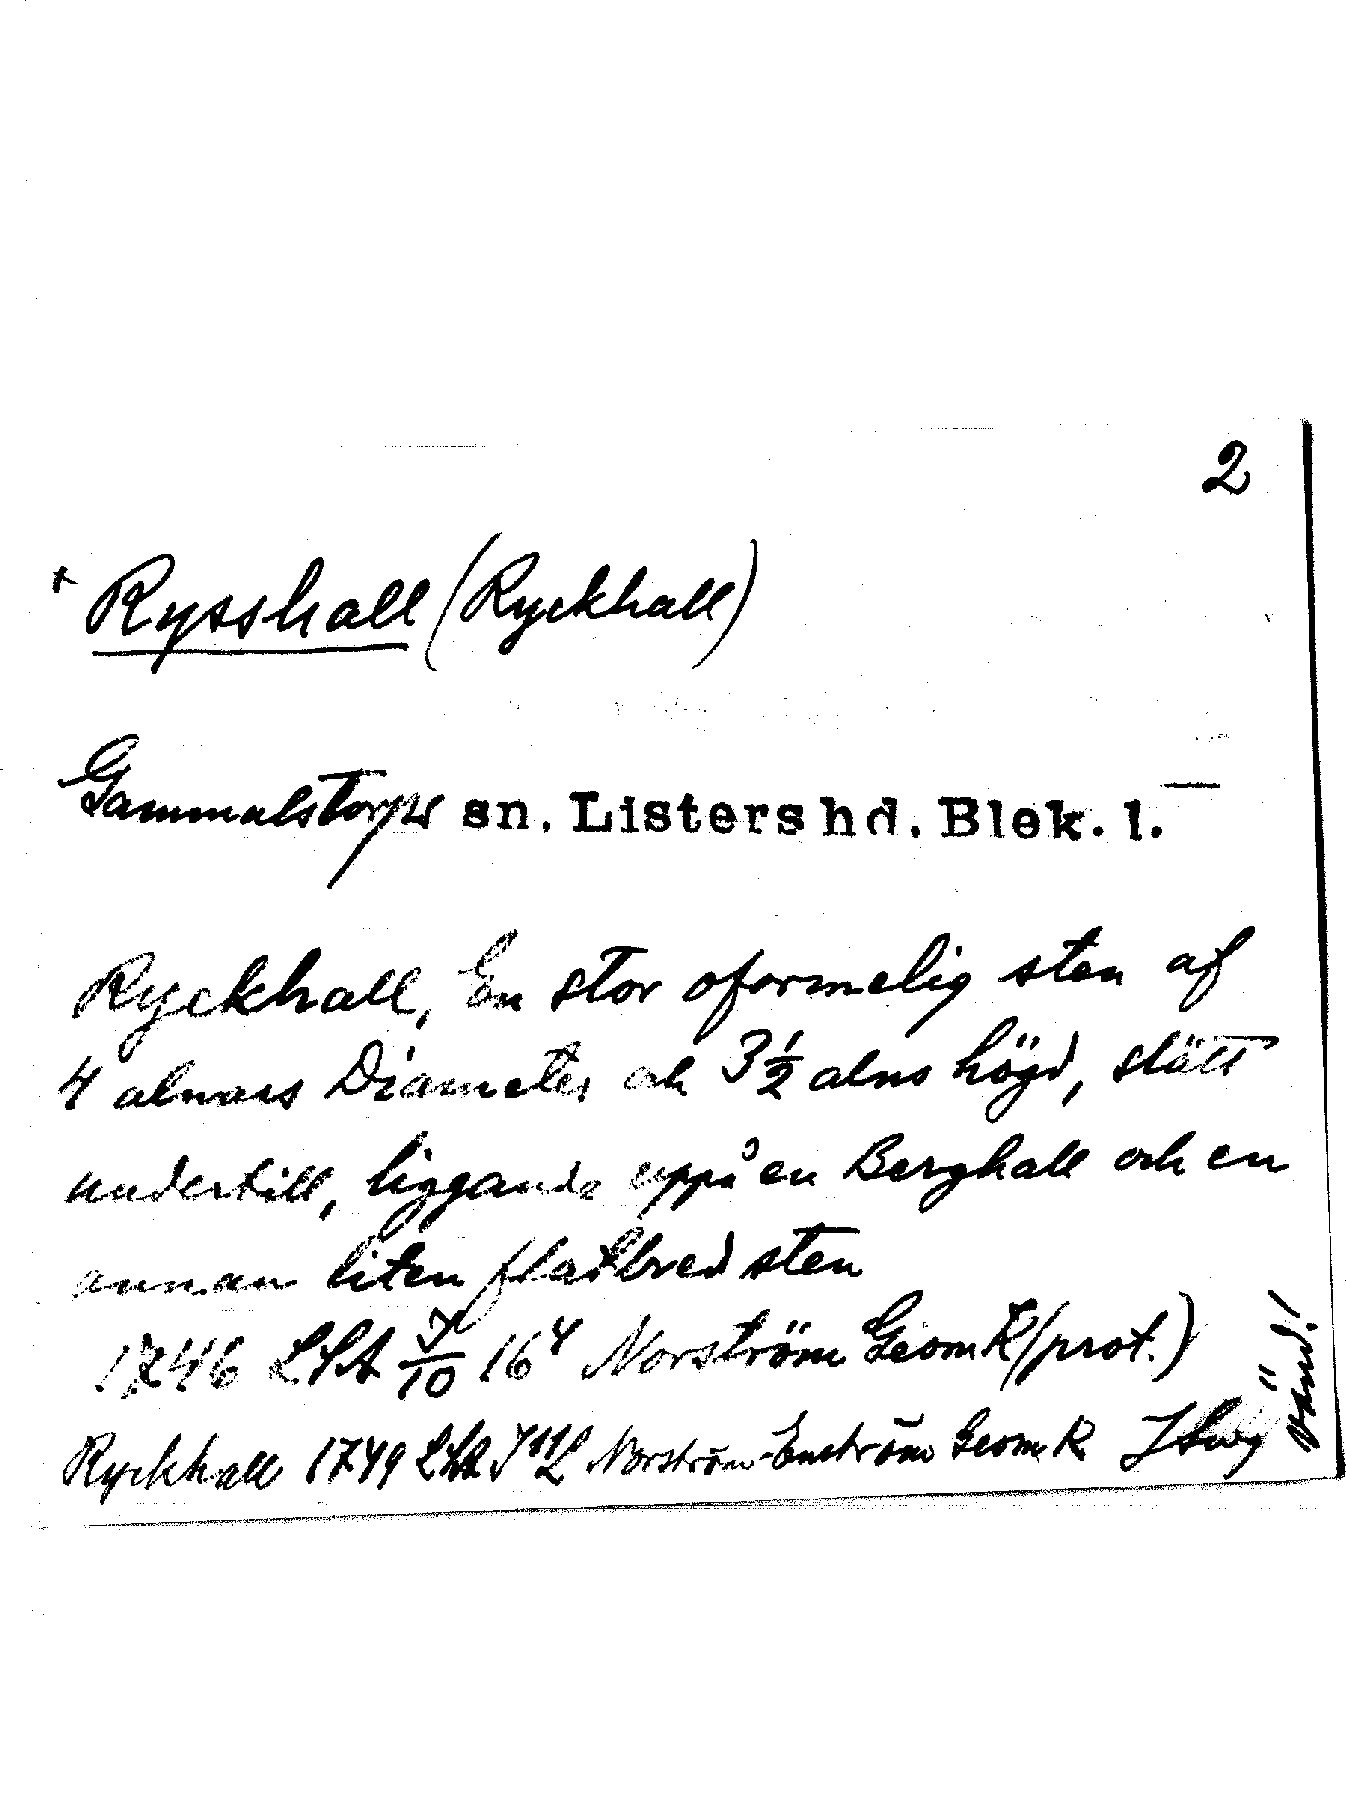 2
+ Rysshall (Ryckhall)
Gammalstorps sn. Listers hd. Blek. l.
Ryckhall, En stor oformelig sten af
4 alnars Diameter och 3½ alns högd, slätt
undertill, liggande uppå en Berghall och en
annan liten flatbred sten
1746 LSA 7/10 16⁴ Norström Geom R (prot.)
Ryckhall 1749 Norström-Enström Geom R
Vänd!